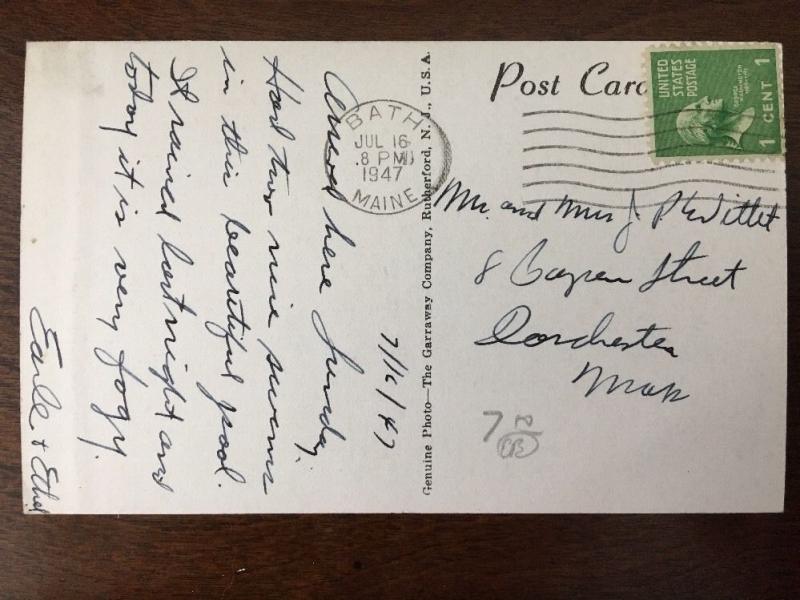 Post Card
UNITED
STATES
POSTAGE
1 CENT 1
BATH
JUL 16
8 PM
1947
MAINE
7/16/47
Arrived here Sunday.
Had two nice swims
in this beautiful pool.
It rained last night and
today it is very fogy.
Earle & Ethel
Genuine Photo—The Garraway Company, Rutherford, N. J., U.S.A.
Mr. and Mrs J. P.
8 Street
Dorchester
Mass
7